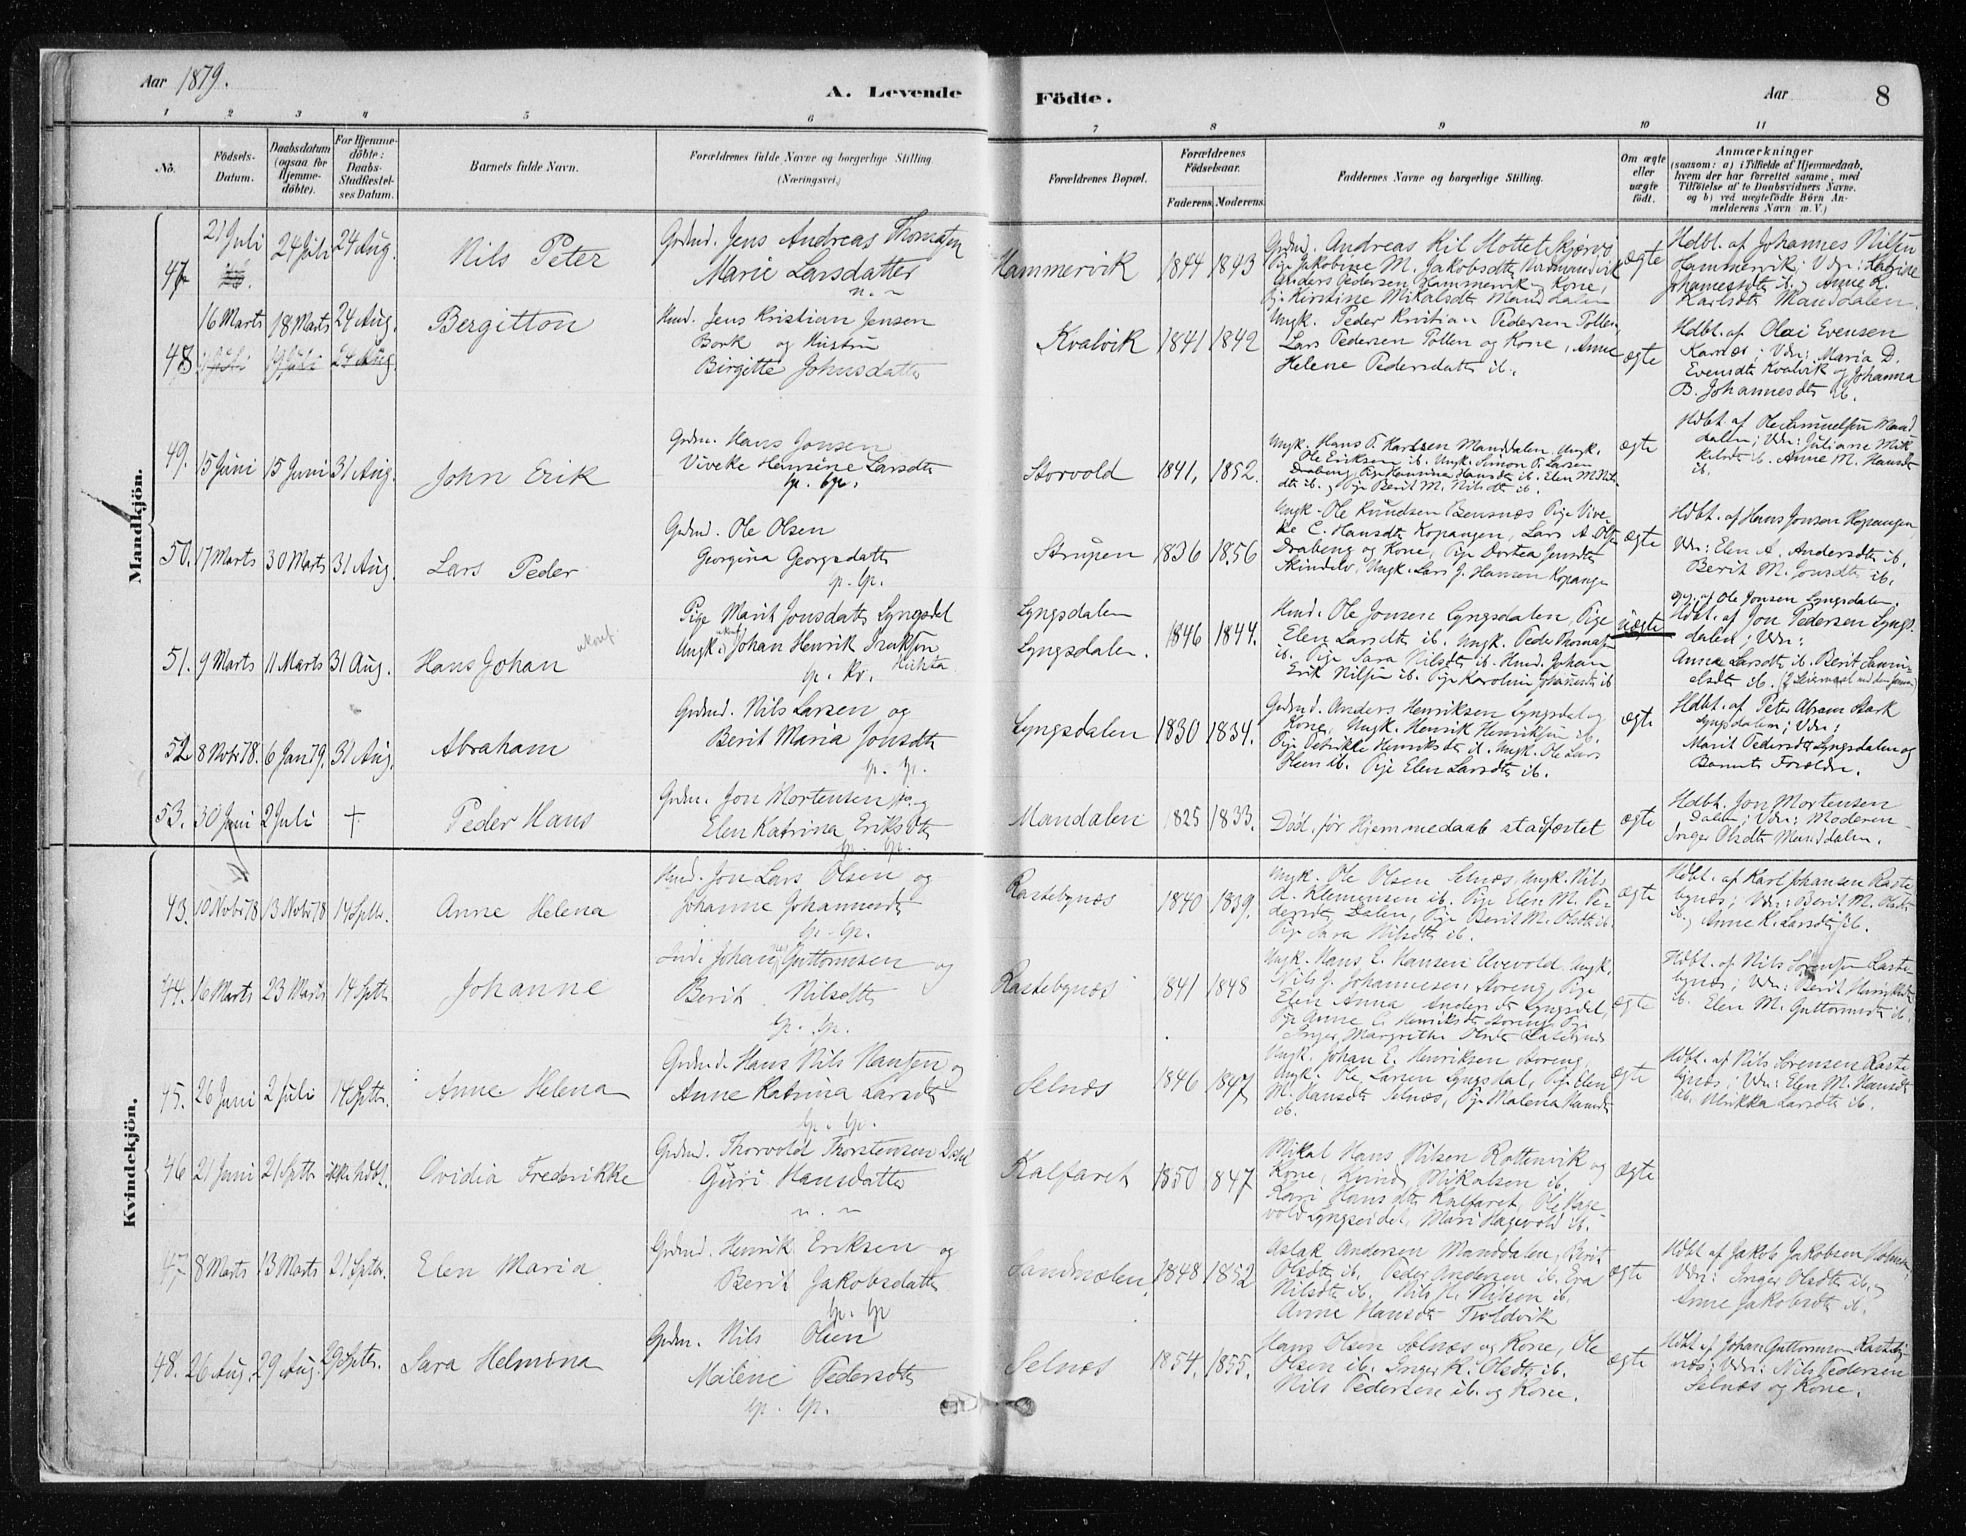 Aar 1879.
A. Levende Födte.
Aar
8
1 2 3 4 5 6 7 8 9 10 11
No.
Födsels-
Datum.
Daabsdatum
(ogsaa for
Hjemme-
döbte).
For Hjemme-
döbte:
Daabs-
Stadfæstel-
ses Datum.
Barnets fulde Navn.
Forældrenes fulde Navne og borgerlige Stilling
(Næringsvei.)
Forældrenes Bopæl.
Forældrenes
Födselsaar.
Faderens. Moderens.
Faddernes Navne og borgerlige Stilling.
Om ægte
eller
uægte
födt.
Anmærkninger
(saasom: a) i Tilfælde af Hjemmedaab,
hvem der har forrettet samme, med
Tilföielse af to Daabsvidners Navne.
og b) ved uægtefödte Börn An-
melderens Navn m. V.)
Mandkjön.
47 21 Juli 24 Juli 24 Aug. Nils Peter
Grdmd. Jens Andreas Thomassen
Marie Larsdatter
Hammervik 1844 1843
Pige Jakobine M. Jakobsdtr
Anders Pedersen Hammervik og Kone,
Kirstine Mikalsdtr Manddalen
ægte
Hdbt. af Johannes Nilsen
Hammervik; Vdn: Katrine
Johannesdtr ib. og Anne K.
Karlsdtr Manddalen.
48 16 Marts 18 Marts 24 Aug. Bergitton
Hmd. Jens Kristian Jensen
Bork og Hustru
Birgitte Johnsdatter
Kvalvik 1841 1842
Ungk. Peder Kristian Pedersen Pollen
Lars Pedersen Pollen og Kone, Anne
Helene Pedersdatter ib.
ægte
Hdbt. af Olai Evensen
Karnæs; Vdn: Maria D.
Evensdtr Kvalvik og Johanna
B. Johannesdtr ib.
49. 15 Juni 15 Juni 31 Aug. John Erik
Grdm. Hans Jonsen
Viveke Hensine Larsdtr
Storvold 1841, 1852.
Ungk. Hans P. Karlsen Manddalen, Ungk.
Ole Eriksen ib. Ungk. Simon P. Larsen
Drabeng, Pige Hannina Hansdtr ib. Elen M. Nils-
dtr ib. Pige Berit M. Nilsdtr ib.
ægte
Hdbt. af Ole Samuelsen Mand
dalen; Vdn: Juliane Mik
kelsdtr ib. Anne M. Hansdtr
ib.
50. 17 Marts 30 Marts 31 Aug. Lars Peder
Grdmd. Ole Olsen
Georgina Georgsdatter
Strupen 1836 1856
Ungk. Ole Knudsen Bensnæs Pige Vive-
ke C. Hansdtr Kopangen, Lars A. Ols
Drabeng og Kone, Pige Dortea Jensdtr
Skindelv, Ungk. Lars J. Hansen Kopange
ægte
Hdbt. af Hans Jonsen Kopangen,
Vdn: Elen A. Andersdtr ib.
Berit M. Jonsdtr ib.
51. 9 Marts 11 Marts 31 Aug. Hans Johan
ukonf.
Pige Marit Jonsdatter Lyngsdal
Ungk. Johan Henrik
Lyngsdalen
Lyngsdalen. 1846 1844.
Hmd. Ole Jonsen Lyngsdalen, Pige
Elen Larsdtr ib. Ungk. Peder Thomassen
ib. Pige Sara Nilsdtr ib. Hmd. Johan
Erik Nilsen ib. Pige Karoline Johannesdtr ib
uægte
opg. af Ole Jonsen Lyngsdalen.
Hdbt. af Jon Pedersen Lyngs-
dalen; Vdn:
Anna Larsdtr ib. Berit Samu-
elsdtr ib.
52 8 Novbr 78. 6 Jan 79. 31 Aug. Abraham
Grdmd. Nils Larsen og
Berit Maria Jonsdtr
Lyngsdalen 1830 1834.
Grdmd. Anders Henriksen Lyngsdal og
Kone, Ungk. Henrik Henriksen ib.
Pige Henrikke Henriksdtr ib. Ungk. Ole Lars
Olsen ib. Pige Elen Larsdtr ib.
ægte
Hdbt. af Peter Abram Stark
Lyngsdalen; Vdn:
Marit Pedersdtr Lyngsdalen og
Barnets Forældre.
53. 30 Juni 2 Juli † Peder Hans
Grdm. Jon Mortensen og
Elen Katrina Eriksdtr
Mandalen 1825 1833.
Död før Hjemmedaab stadfæstet
ægte
Hdbt. Jon Mortensen
Dalen; Vdn: Moderen
Inger Olsdtr Manddalen.
Kvindekjön.
43. 10 Novbr 78 13 Novbr 78 14 Sptbr. Anne Helena
Hmd. Jon Lars Olsen og
Johanne Johannesdtr
Rastebynæs 1840 1839.
Ungk. Ole Olsen Selnæs, Ungk. Nils
A. Klemensen ib. Pige Elen M. Pe-
dersdtr Dalen, Pige Berit M. Olsdtr ib.
Pige Sara Nilsdtr ib.
ægte
Hdbt. af Karl Johansen Raste
bynæs; Vdn: Berit M. Olsdtr
ib. Anne K. Larsdtr ib.
44. 16 Marts 23 Marts 14 Sptbr Johanne
Ind. Johannes Guttormsen og
Berit Nilsdtr
Rastebynæs 1841 1848
Ungk. Hans E. Hansen Urevold. Ungk.
Nils J. Johannesen, Storeng, Pige
Elen Anna Andersdtr Lyngsdal,
Pige Anne C. Henriksdtr Storeng, Pige
Inger Margrethe Olsdtr
ægte
Hdbt. af Nils Sörensen Raste
bynæs; Vdn: Berit Henriksdtr
ib. Elen M. Guttormsdtr ib.
45. 26 Juni 2 Juli 14 Sptbr. Anne Helena
Grdmd. Hans Nils Hansen og
Anne Katrina Larsdtr
Selnæs 1846 1847
Ungk. Johan E. Henriksen Storeng,
Ungk. Ole Larsen Lyngsdal, Pige Elen
M. Hansdtr Selnæs, Pige Malena Hansdtr
ib.
ægte
Hdbt. af Nils Sörensen Raste
bynæs; Vdn: Elen M. Hansdtr
ib. Ulrikka Larsdtr ib.
46 21 Juni 21 Sptbr ikke hdbt. Ovidia Frederikke
Grdmd. Thorvold Thorstensen
Guri Hansdatter
Kalfaret 1850 1847
Mikal Hans Nilsen Rottenvik og
Kone, Mikalsen ib.
Kari Hansdtr Kalfaret, Ole Hage-
vold Lyngseidet, Mari Hagevold ib.
ægte
47 8 Marts 13 Marts 21 Sptbr. Elen Maria
Grdmd. Henrik Eriksen og
Berit Jakobsdatter
Sandnælen. 1848 1852
Aslak Andersen Manddalen, Berit
Olsdtr ib. Peder Andersen ib. Eva
Nilsdtr ib. Nils N. Nilsen ib.
Anne Hansdtr Troldvik
ægte
Hdbt af Jakob Jakobsen Holmen;
Vdn: Inger Olsdtr ib. og
Anne Jakobsdtr ib.
48. 26 Aug. 29 Aug. 29 Sptbr. Sara Helmina
Grdm. Nils Olsen
Malene Pedersdtr
Selnæs 1854. 1855.
Hans Olsen Selnæs og Kone, Ole
Olsen ib. Inger K. Olsdtr ib.
Nils Pedersen ib. og Kone.
ægte
Hdbt af Johan Guttormsen Rasteby-
næs; Vdn: Nils Pedersen
Selnæs og Kone.